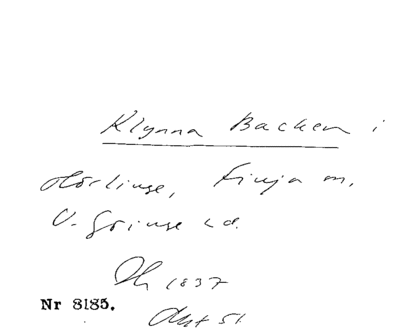 Klynna Backen i
Hörlinge, Finja m.
V. Göinge hd.
Dh 1837
Nr 8185.
51